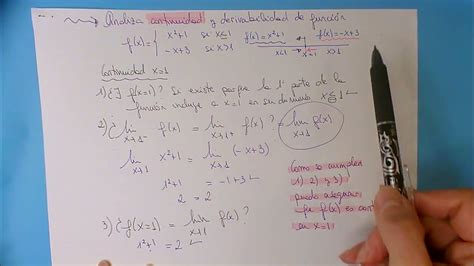 Analiza continuidad y derivabilidad de función
f(x)= { x²+1 si x≤1
-x+3 si x>1
f(x)=x²+1 f(x)=-x+3
x≤1 x=1 x>1
Continuidad x=1
1) ¿∃ f(x=1)? Sí existe porque la 1ª parte de la
función incluye a x=1 en su dominio x≤1 ←
2) ¿lim x→1⁻ f(x) = lim x→1⁺ f(x)? = lim x→1 f(x)
lim x→1 x²+1 = lim x→1 (-x+3)
1²+1 = -1+3 ←
2 = 2 ←
3) ¿f(x=1) = lim x→1 f(x)?
1²+1 = 2 ←
Como se cumplen
1) 2) y 3)
puedo asegurar
que f(x) es cont
en x=1